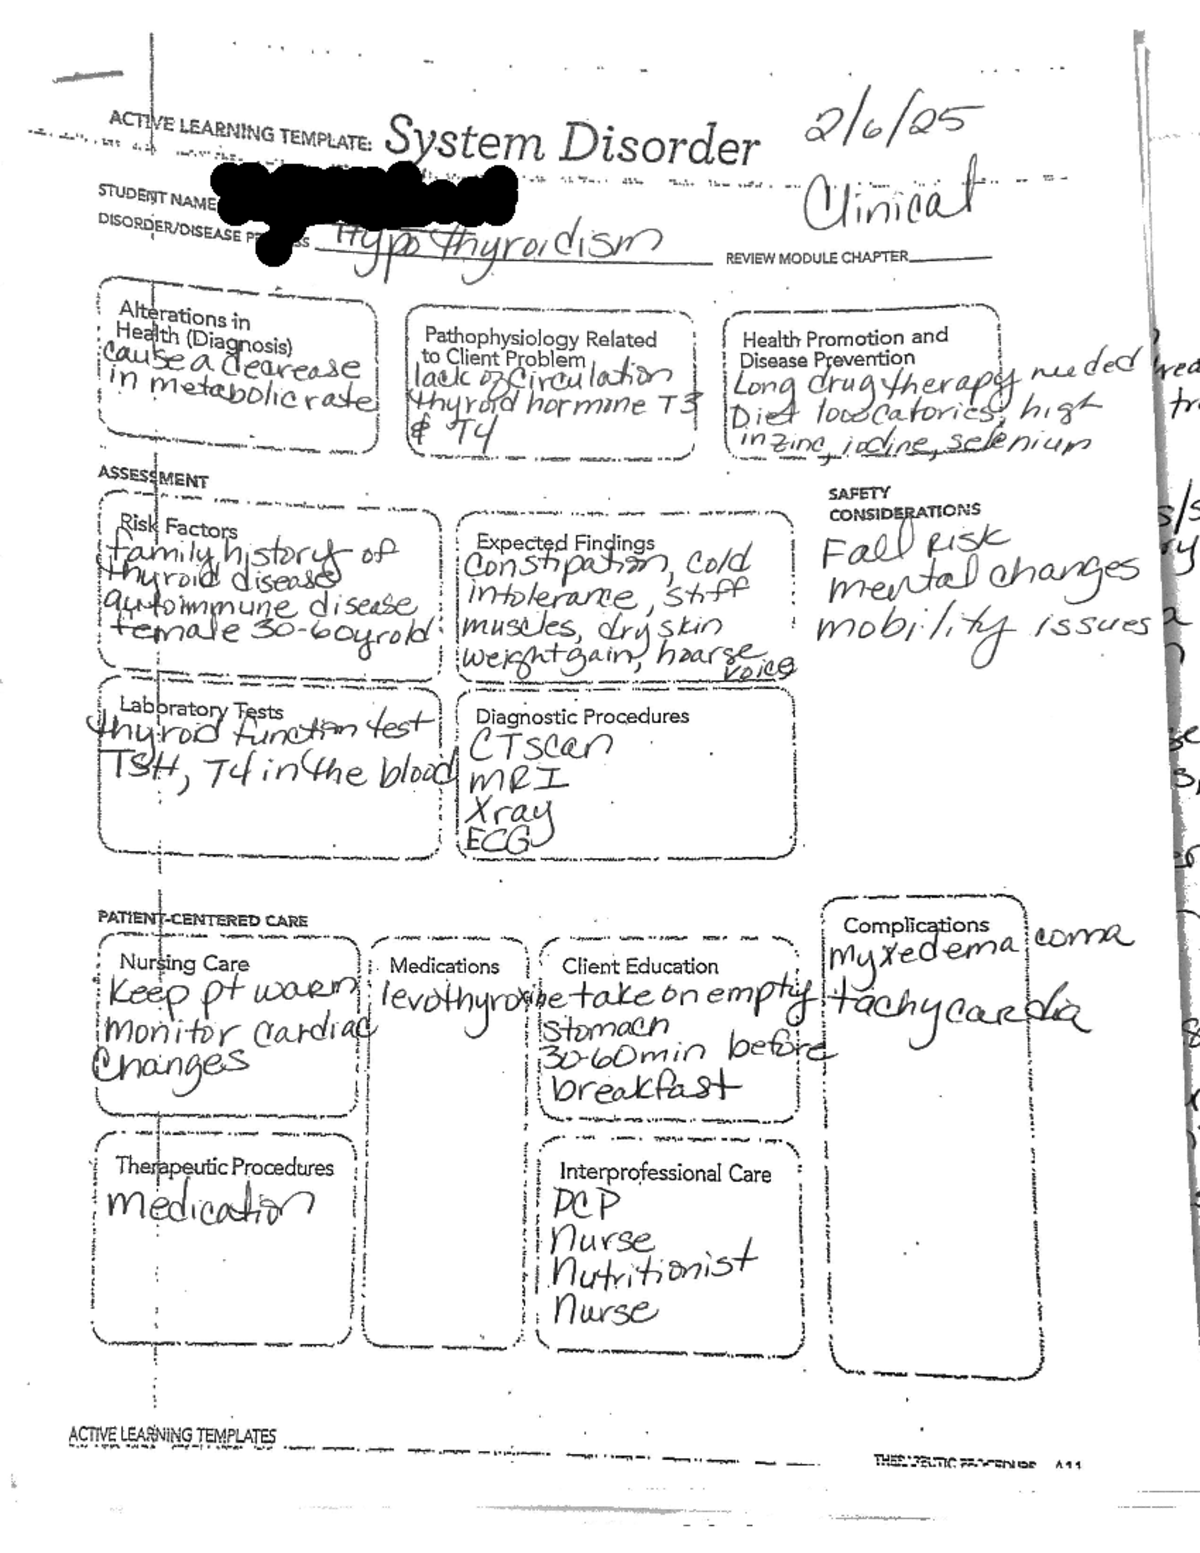 ACTIVE LEARNING TEMPLATE: System Disorder
2/6/25
Clinical
STUDENT NAME
DISORDER/DISEASE Hypothyroidism
REVIEW MODULE CHAPTER
Alterations in
Health (Diagnosis)
cause a decrease
in metabolic rate
Pathophysiology Related
to Client Problem
lack of circulation
thyroid hormone T3
& T4
Health Promotion and
Disease Prevention
Long drug therapy needed
Diet low calories, high
in zinc, iodine, selenium
ASSESSMENT
SAFETY
CONSIDERATIONS
Fall Risk
mental changes
mobility issues
Risk Factors
family history of
thyroid disease
autoimmune disease
female 30-60yr old
Expected Findings
Constipation, cold
intolerance, stiff
muscles, dry skin
weight gain, hoarse
voice
Laboratory Tests
thyroid function test
TSH, T4 in the blood
Diagnostic Procedures
CT scan
MRI
Xray
ECG
PATIENT-CENTERED CARE
Nursing Care
Keep pt warm
monitor cardiac
changes
Medications
levothyroxine
Client Education
take on empty
stomach
30-60min before
breakfast
Complications
myxedema coma
tachycardia
Therapeutic Procedures
medication
Interprofessional Care
PCP
Nurse
Nutritionist
Nurse
ACTIVE LEARNING TEMPLATES
THERAPEUTIC PROCEDURE A11